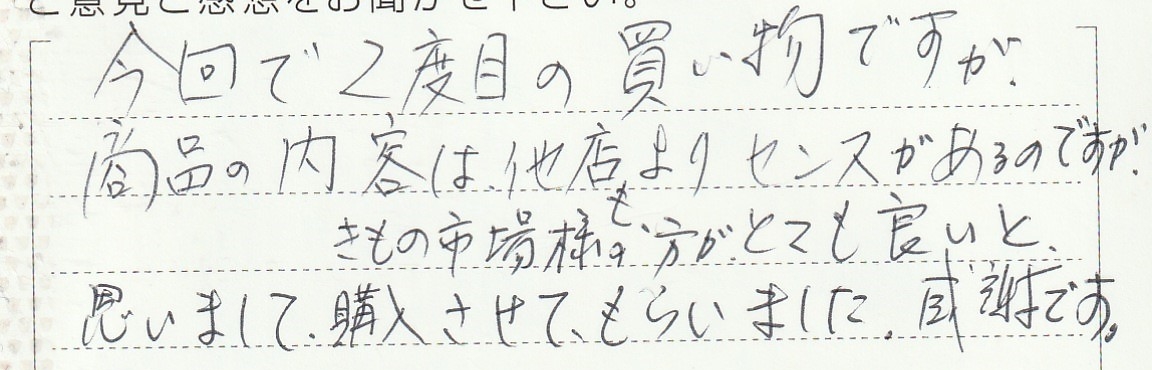 ご意見ご感想をお聞かせ下さい。
今回で2度目の買い物ですが、
商品の内容は、他店よりセンスがあるのですが、
きもの市場様の方が、とても良いと、
思いまして、購入させて、もらいました。感謝です。